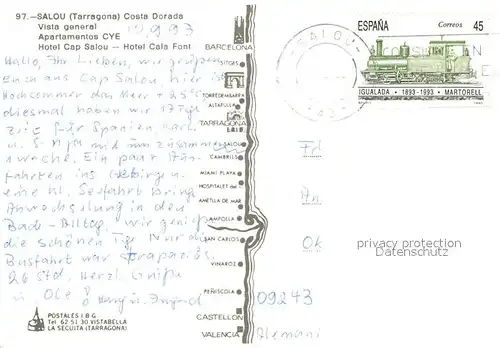 97.—SALOU (Tarragona) Costa Dorada
Vista general
Apartamentos CYE
Hotel Cap Salou — Hotel Cala Font
9.993
Hallo, Ihr Lieben, wir grüßen
Euch aus Cap Salou, hier ist
Hochsommer das Meer + 25°
diesmal haben wir 17 Tg
für Spanien,
u. zusammen
1 Woche. Ein paar
fahrten ins Gebirge u.
eine kl. Seefahrt bring
Abwechslung in den
Bade- wir genieß
die schönen Tge Nur die
Busfahrt war strapaziös
26 Std. Herzl. Grüße
u. Ole
POSTALES I B G
Tel 62 51 30 VISTABELLA
LA SECUITA (TARRAGONA)
BARCELONA
SITGES
TORREDEMBARRA
ALTAFULLA
TARRAGONA
SALOU
CAMBRILS
MIAMI PLAYA
HOSPITALET del
AMETLLA DE MAR
AMPOLLA
SAN CARLOS
VINAROZ
PEÑISCOLA
CASTELLON
VALENCIA
SALOU
ESPAÑA Correos 45
IGUALADA · 1893-1993 · MARTORELL
Fr
An
Ok
09243
Alemani
privacy protection
Datenschutz